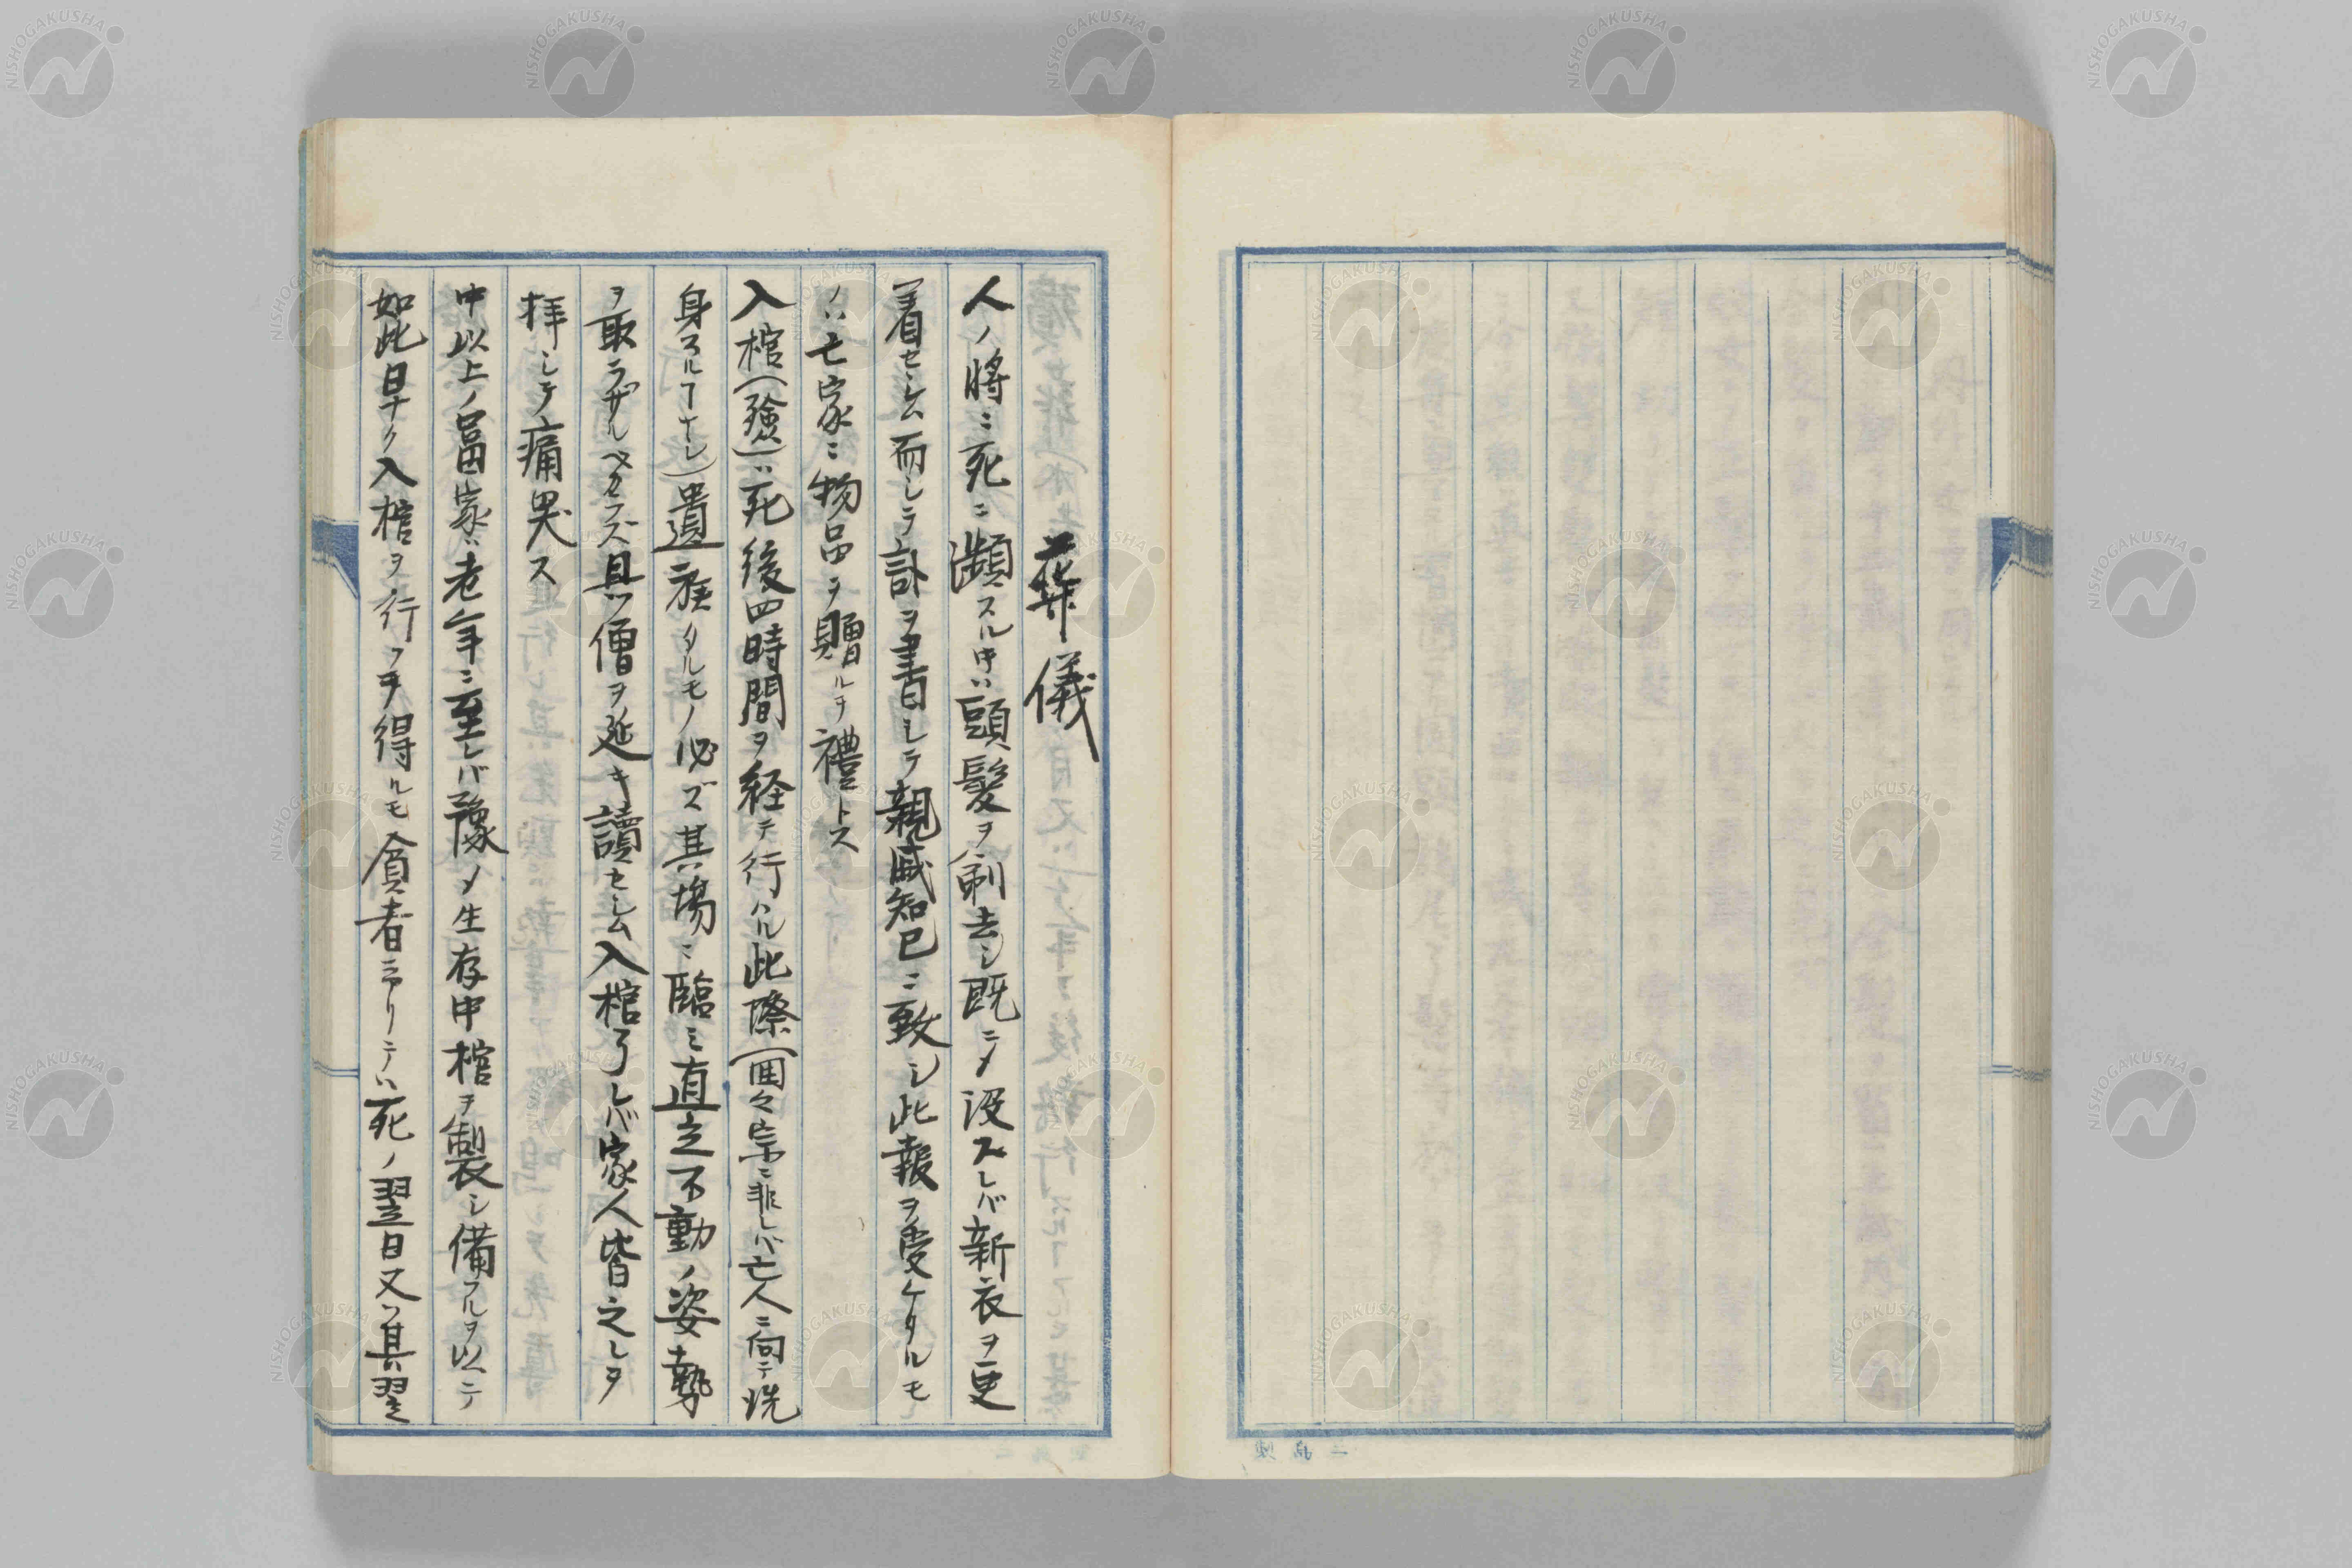 葬儀
人ノ將ニ死ニ瀕スル中ハ頭髮ヲ剃去シ既ニメ沒スレバ新衣ヲ更
着セシム而シテ訃ヲ書シテ親戚知已ニ致シ此報ヲ受ケタルモ
ノハ亡家ニ物品ヲ贈ルヲ禮トス
入棺(殮)ハ死後四時間ヲ経テ行ハル此際(回々宗ニ非レバ亡人ニ向テ洗
身スルヿナシ)遺族タルモノ必ズ其場ニ臨ミ直立不動ノ姿勢
ヲ取ラザルベカラズ且ツ僧ヲ延キ讀セシム入棺了レバ家人皆之レヲ
拝シテ痛哭ス
中以上ノ富家ハ老年ニ至レバ豫メ生存中棺ヲ製シ備フルヲ以テ
如此早ク入棺ヲ行フヲ得ルモ貧者ニ至リテハ死ノ翌日又ハ其翌